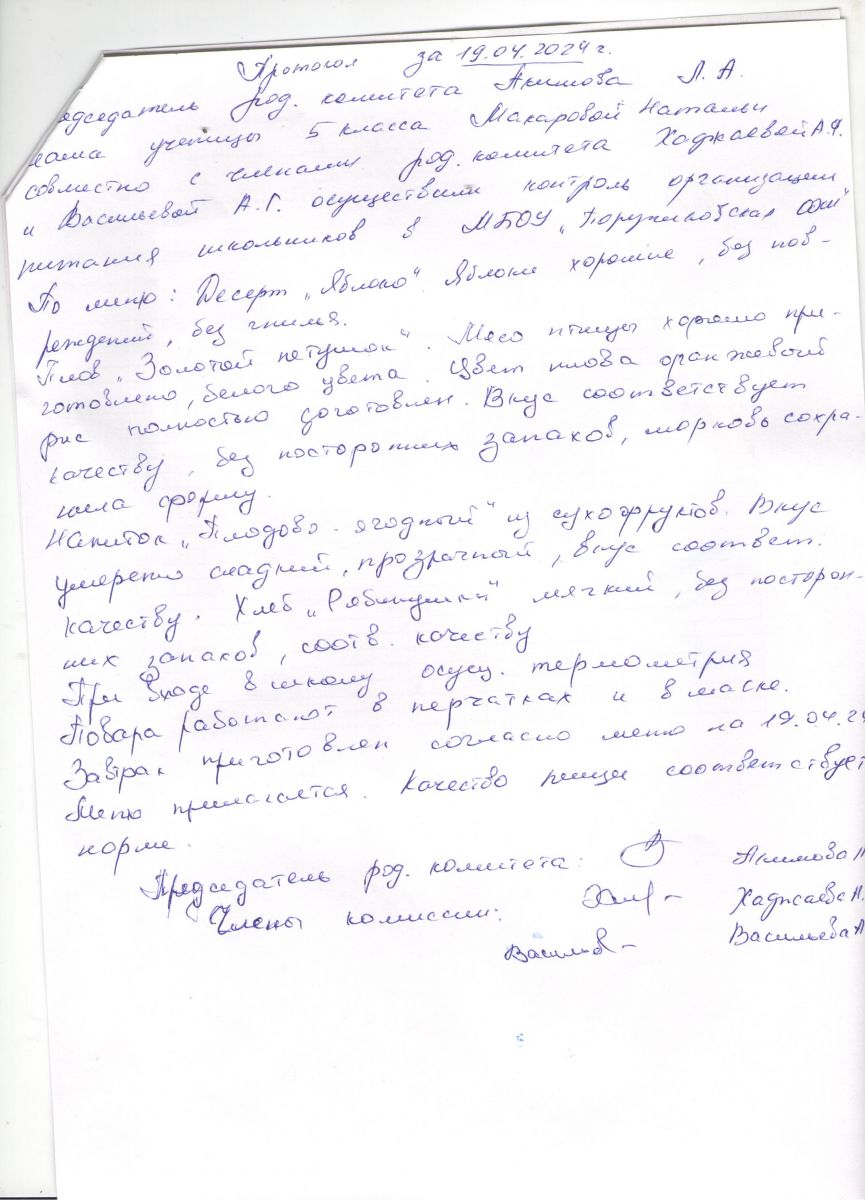 Протокол за 19.04.2024 г.
едседатель род. комитета Акимова Л. А.
мама ученицы 5 класса Макаровой Натальи
совместно с членами род. комитета Хаджаевой А.Я.
и Васильевой А.Г. осуществили контроль организации
питания школьников в МБОУ „Поружиковская СОШ"
По меню: Десерт „Яблоко". Яблоки хорошие, без пов-
реждений, без гнили.
Плов „Золотой петушок". Мясо птицы хорошо при-
готовлено, белого цвета. Цвет плова оранжевый
рис полностью доготовлен. Вкус соответствует
качеству, без посторонних запахов, морковь сохра-
нила форму.
Напиток „Плодово-ягодный" из сухофруктов. Вкус
умеренно сладкий, прозрачный, вкус соответ.
качеству. Хлеб „Рябинушка" мягкий, без посторон-
них запахов, соотв. качеству
При входе в школу осущ. термометрия
Повара работают в перчатках и в маске.
Завтрак приготовлен согласно меню на 19.04.24
Меню прилагается. Качество пищи соответствует
норме.
Председатель род. комитета: Акимова Л
Члены комиссии: Хаджаева А.
Васильев- Васильева А